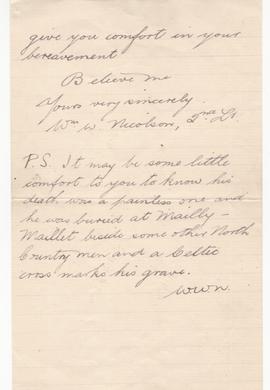 give you comfort in your
bereavement
Believe me
Yours very sincerely.
Wm W. Nicolson, 2nd Lt.
P.S. It may be some little
comfort to you to know his
death was a painless one and
he was buried at Mailly-
Maillet beside some other North
Country men and a Celtic
cross marks his grave.
WWN.